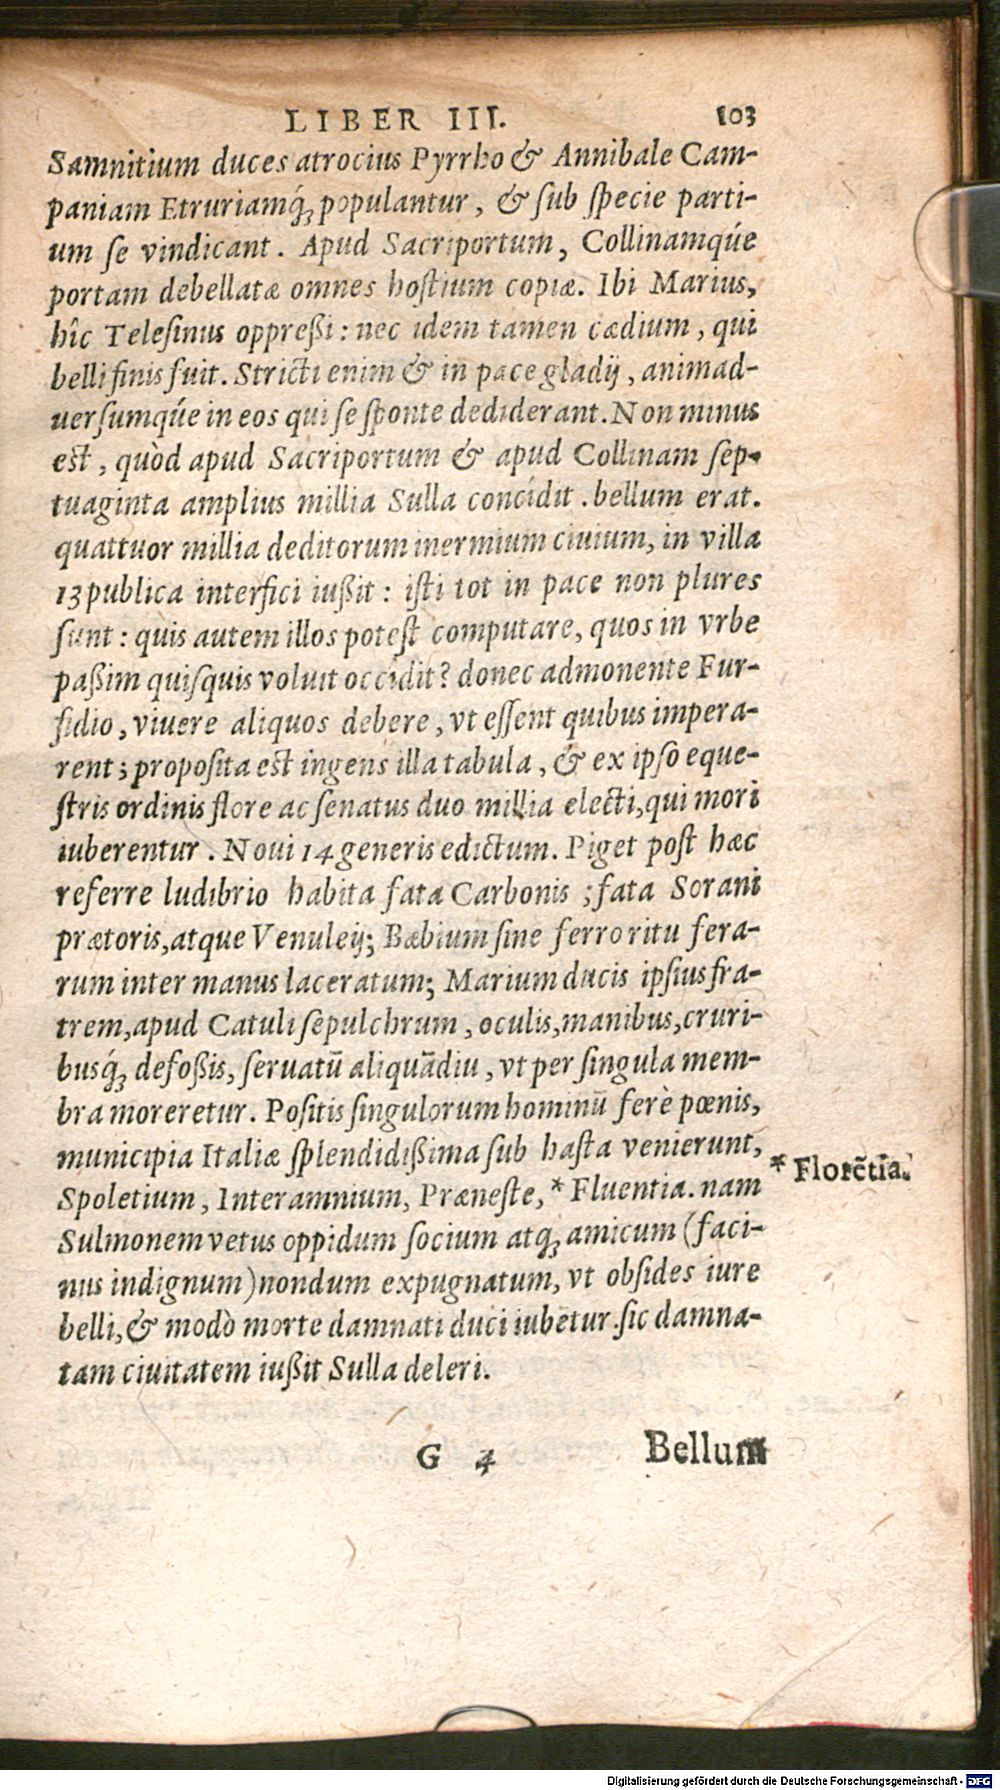 LIBER III. 103
Samnitium duces atrocius Pyrrho & Annibale Cam-
paniam Etruriamq́; populantur, & ſub ſpecie parti-
um ſe vindicant. Apud Sacriportum, Collinamq́ue
portam debellatæ omnes hoſtium copiæ. Ibi Marius,
hîc Teleſinus oppreßi: nec idem tamen cædium, qui
belli finis fuit. Stricti enim & in pace gladij, animad-
uerſumq́ue in eos qui ſe ſponte dediderant. Non minus
est, quòd apud Sacriportum & apud Collinam ſep-
tuaginta amplius millia Sulla concidit. bellum erat.
quattuor millia deditorum inermium ciuium, in villa
13 publica interfici iußit: iſti tot in pace non plures
ſunt: quis autem illos poteſt computare, quos in vrbe
paßim quiſquis voluit occidit? donec admonente Fur-
fidio, viuere aliquos debere, vt eſſent quibus impera-
rent; propoſita est ingens illa tabula, & ex ipſo eque-
ſtris ordinis flore ac ſenatus duo millia electi, qui mori
iuberentur. Noui 14 generis edictum. Piget poſt hæc
referre ludibrio habita fata Carbonis; fata Sorani
prætoris, atque Venuleij; Bæbium ſine ferro ritu fera-
rum inter manus laceratum; Marium ducis ipſius fra-
trem, apud Catuli ſepulchrum, oculis, manibus, cruri-
busq́; defoßis, ſeruatũ aliquãdiu, vt per ſingula mem-
bra moreretur. Poſitis ſingulorum hominũ ferè pœnis,
municipia Italiæ ſplendidißima ſub haſta venierunt,
Spoletium, Interamnium, Præneſte, * Fluentia. nam
* Florẽtia.
Sulmonem vetus oppidum ſocium atq; amicum (faci-
nus indignum) nondum expugnatum, vt obſides iure
belli, & modò morte damnati duci iubẽtur. ſic damna-
tam ciuitatem iußit Sulla deleri.
G 4 Bellum
Digitalisierung gefördert durch die Deutsche Forschungsgemeinschaft - DFG